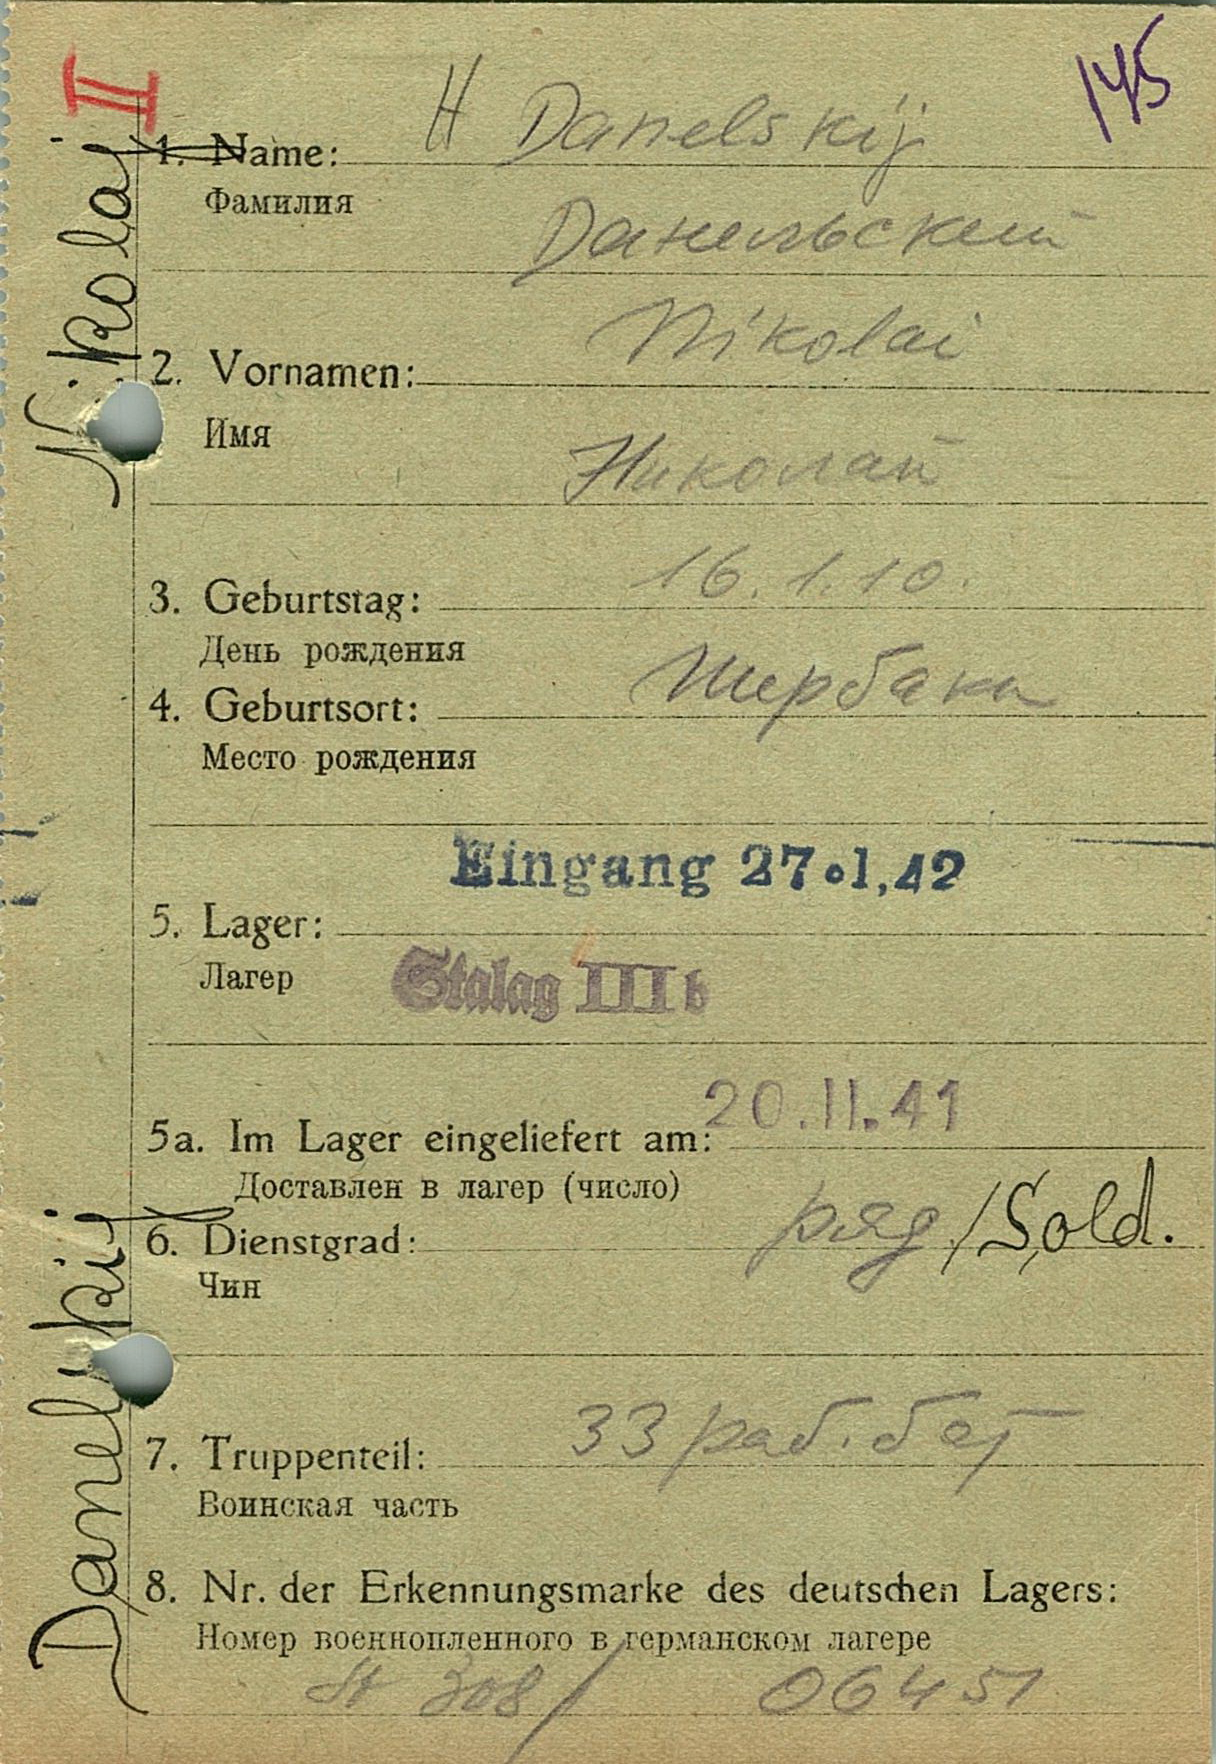 II
145
1. Name: H Danelskij
Фамилия
Данельский
Nikolai
2. Vornamen:
Имя
Николай
3. Geburtstag: 16.1.10.
День рождения
4. Geburtsort: Щербаки
Место рождения
Eingang 27.1.42
5. Lager:
Лагер
Stalag III b
5a. Im Lager eingeliefert am: 20.11.41
Доставлен в лагер (число)
6. Dienstgrad: ряд /Sold.
Чин
7. Truppenteil: 33 раб. бат
Воинская часть
8. Nr. der Erkennungsmarke des deutschen Lagers:
Номер военнопленного в германском лагере
St 308/ 06451
Danelskij Nikolaj